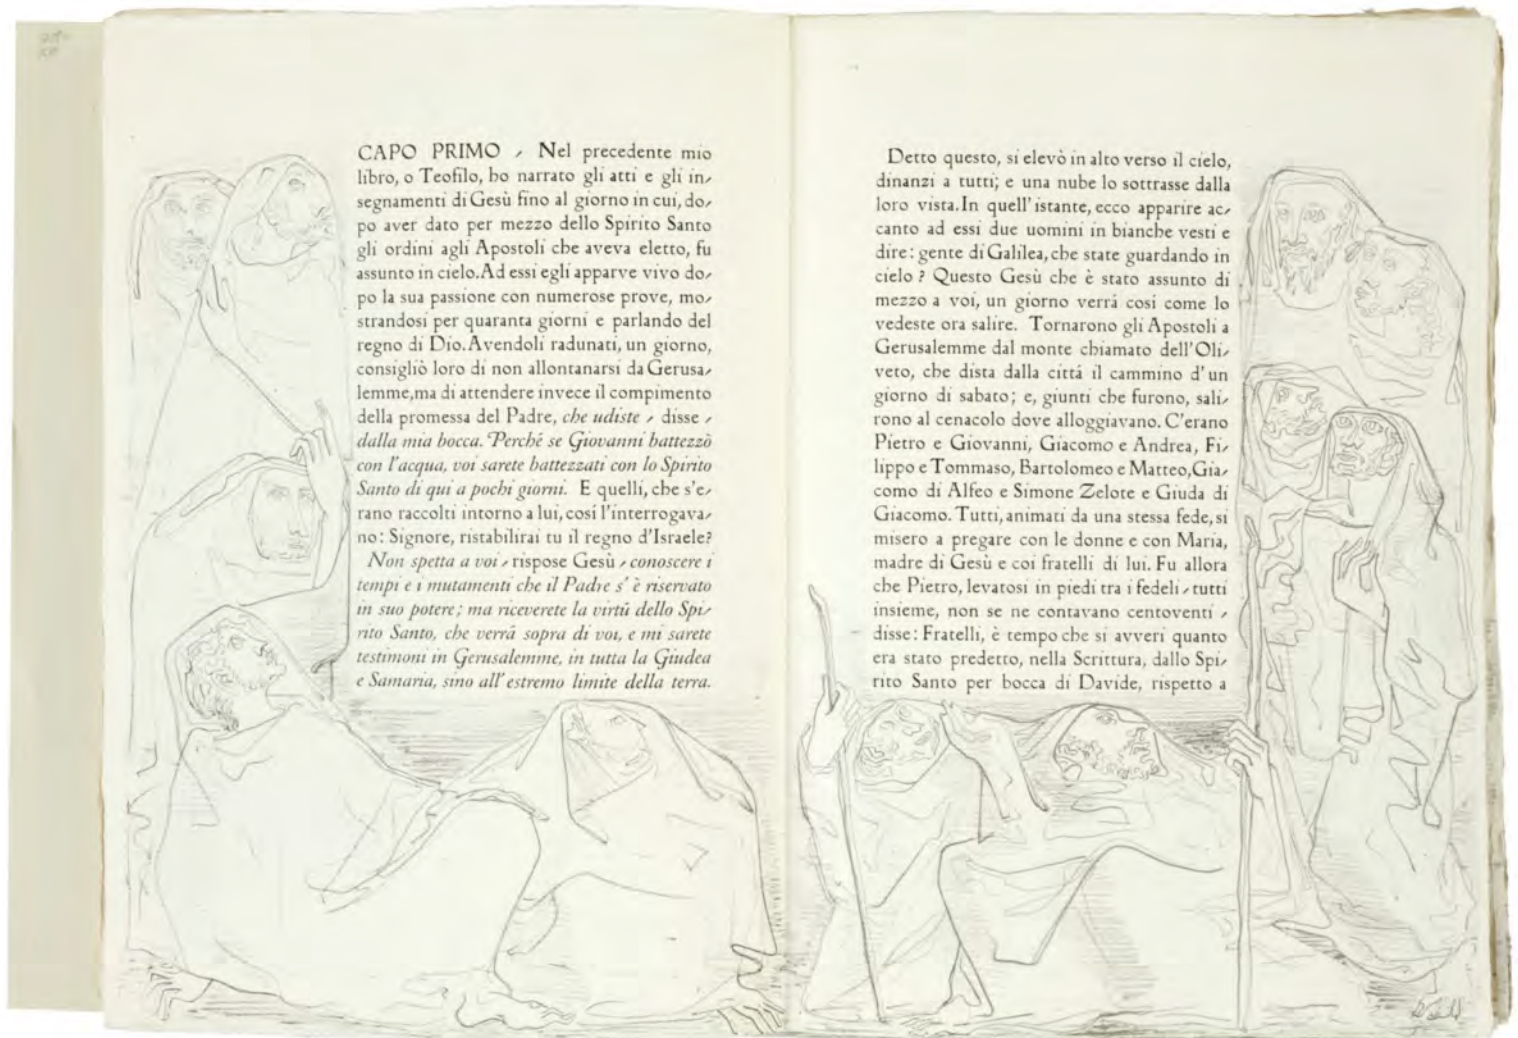 CAPO PRIMO ⸝ Nel precedente mio
libro, o Teofilo, ho narrato gli atti e gli in⸝
segnamenti di Gesù fino al giorno in cui, do⸝
po aver dato per mezzo dello Spirito Santo
gli ordini agli Apostoli che aveva eletto, fu
assunto in cielo. Ad essi egli apparve vivo do⸝
po la sua passione con numerose prove, mo⸝
strandosi per quaranta giorni e parlando del
regno di Dio. Avendoli radunati, un giorno,
consigliò loro di non allontanarsi da Gerusa⸝
lemme, ma di attendere invece il compimento
della promessa del Padre, che udiste ⸝ disse ⸝
dalla mia bocca. Perché se Giovanni battezzò
con l'acqua, voi sarete battezzati con lo Spirito
Santo di qui a pochi giorni. E quelli, che s'e⸝
rano raccolti intorno a lui, cosí l'interrogava⸝
no: Signore, ristabilirai tu il regno d'Israele?
Non spetta a voi ⸝ rispose Gesù ⸝ conoscere i
tempi e i mutamenti che il Padre s'è riservato
in suo potere; ma riceverete la virtú dello Spi⸝
rito Santo, che verrá sopra di voi, e mi sarete
testimoni in Gerusalemme, in tutta la Giudea
e Samaria, sino all'estremo limite della terra.
Detto questo, si elevò in alto verso il cielo,
dinanzi a tutti; e una nube lo sottrasse dalla
loro vista. In quell'istante, ecco apparire ac⸝
canto ad essi due uomini in bianche vesti e
dire: gente di Galilea, che state guardando in
cielo? Questo Gesù che è stato assunto di
mezzo a voi, un giorno verrá cosi come lo
vedeste ora salire. Tornarono gli Apostoli a
Gerusalemme dal monte chiamato dell'Oli⸝
veto, che dista dalla cittá il cammino d'un
giorno di sabato; e, giunti che furono, sali⸝
rono al cenacolo dove alloggiavano. C'erano
Pietro e Giovanni, Giacomo e Andrea, Fi⸝
lippo e Tommaso, Bartolomeo e Matteo, Gia⸝
como di Alfeo e Simone Zelote e Giuda di
Giacomo. Tutti, animati da una stessa fede, si
misero a pregare con le donne e con Maria,
madre di Gesù e coi fratelli di lui. Fu allora
che Pietro, levatosi in piedi tra i fedeli ⸝ tutti
insieme, non se ne contavano centoventi ⸝
disse: Fratelli, è tempo che si avveri quanto
era stato predetto, nella Scrittura, dallo Spi⸝
rito Santo per bocca di Davide, rispetto a